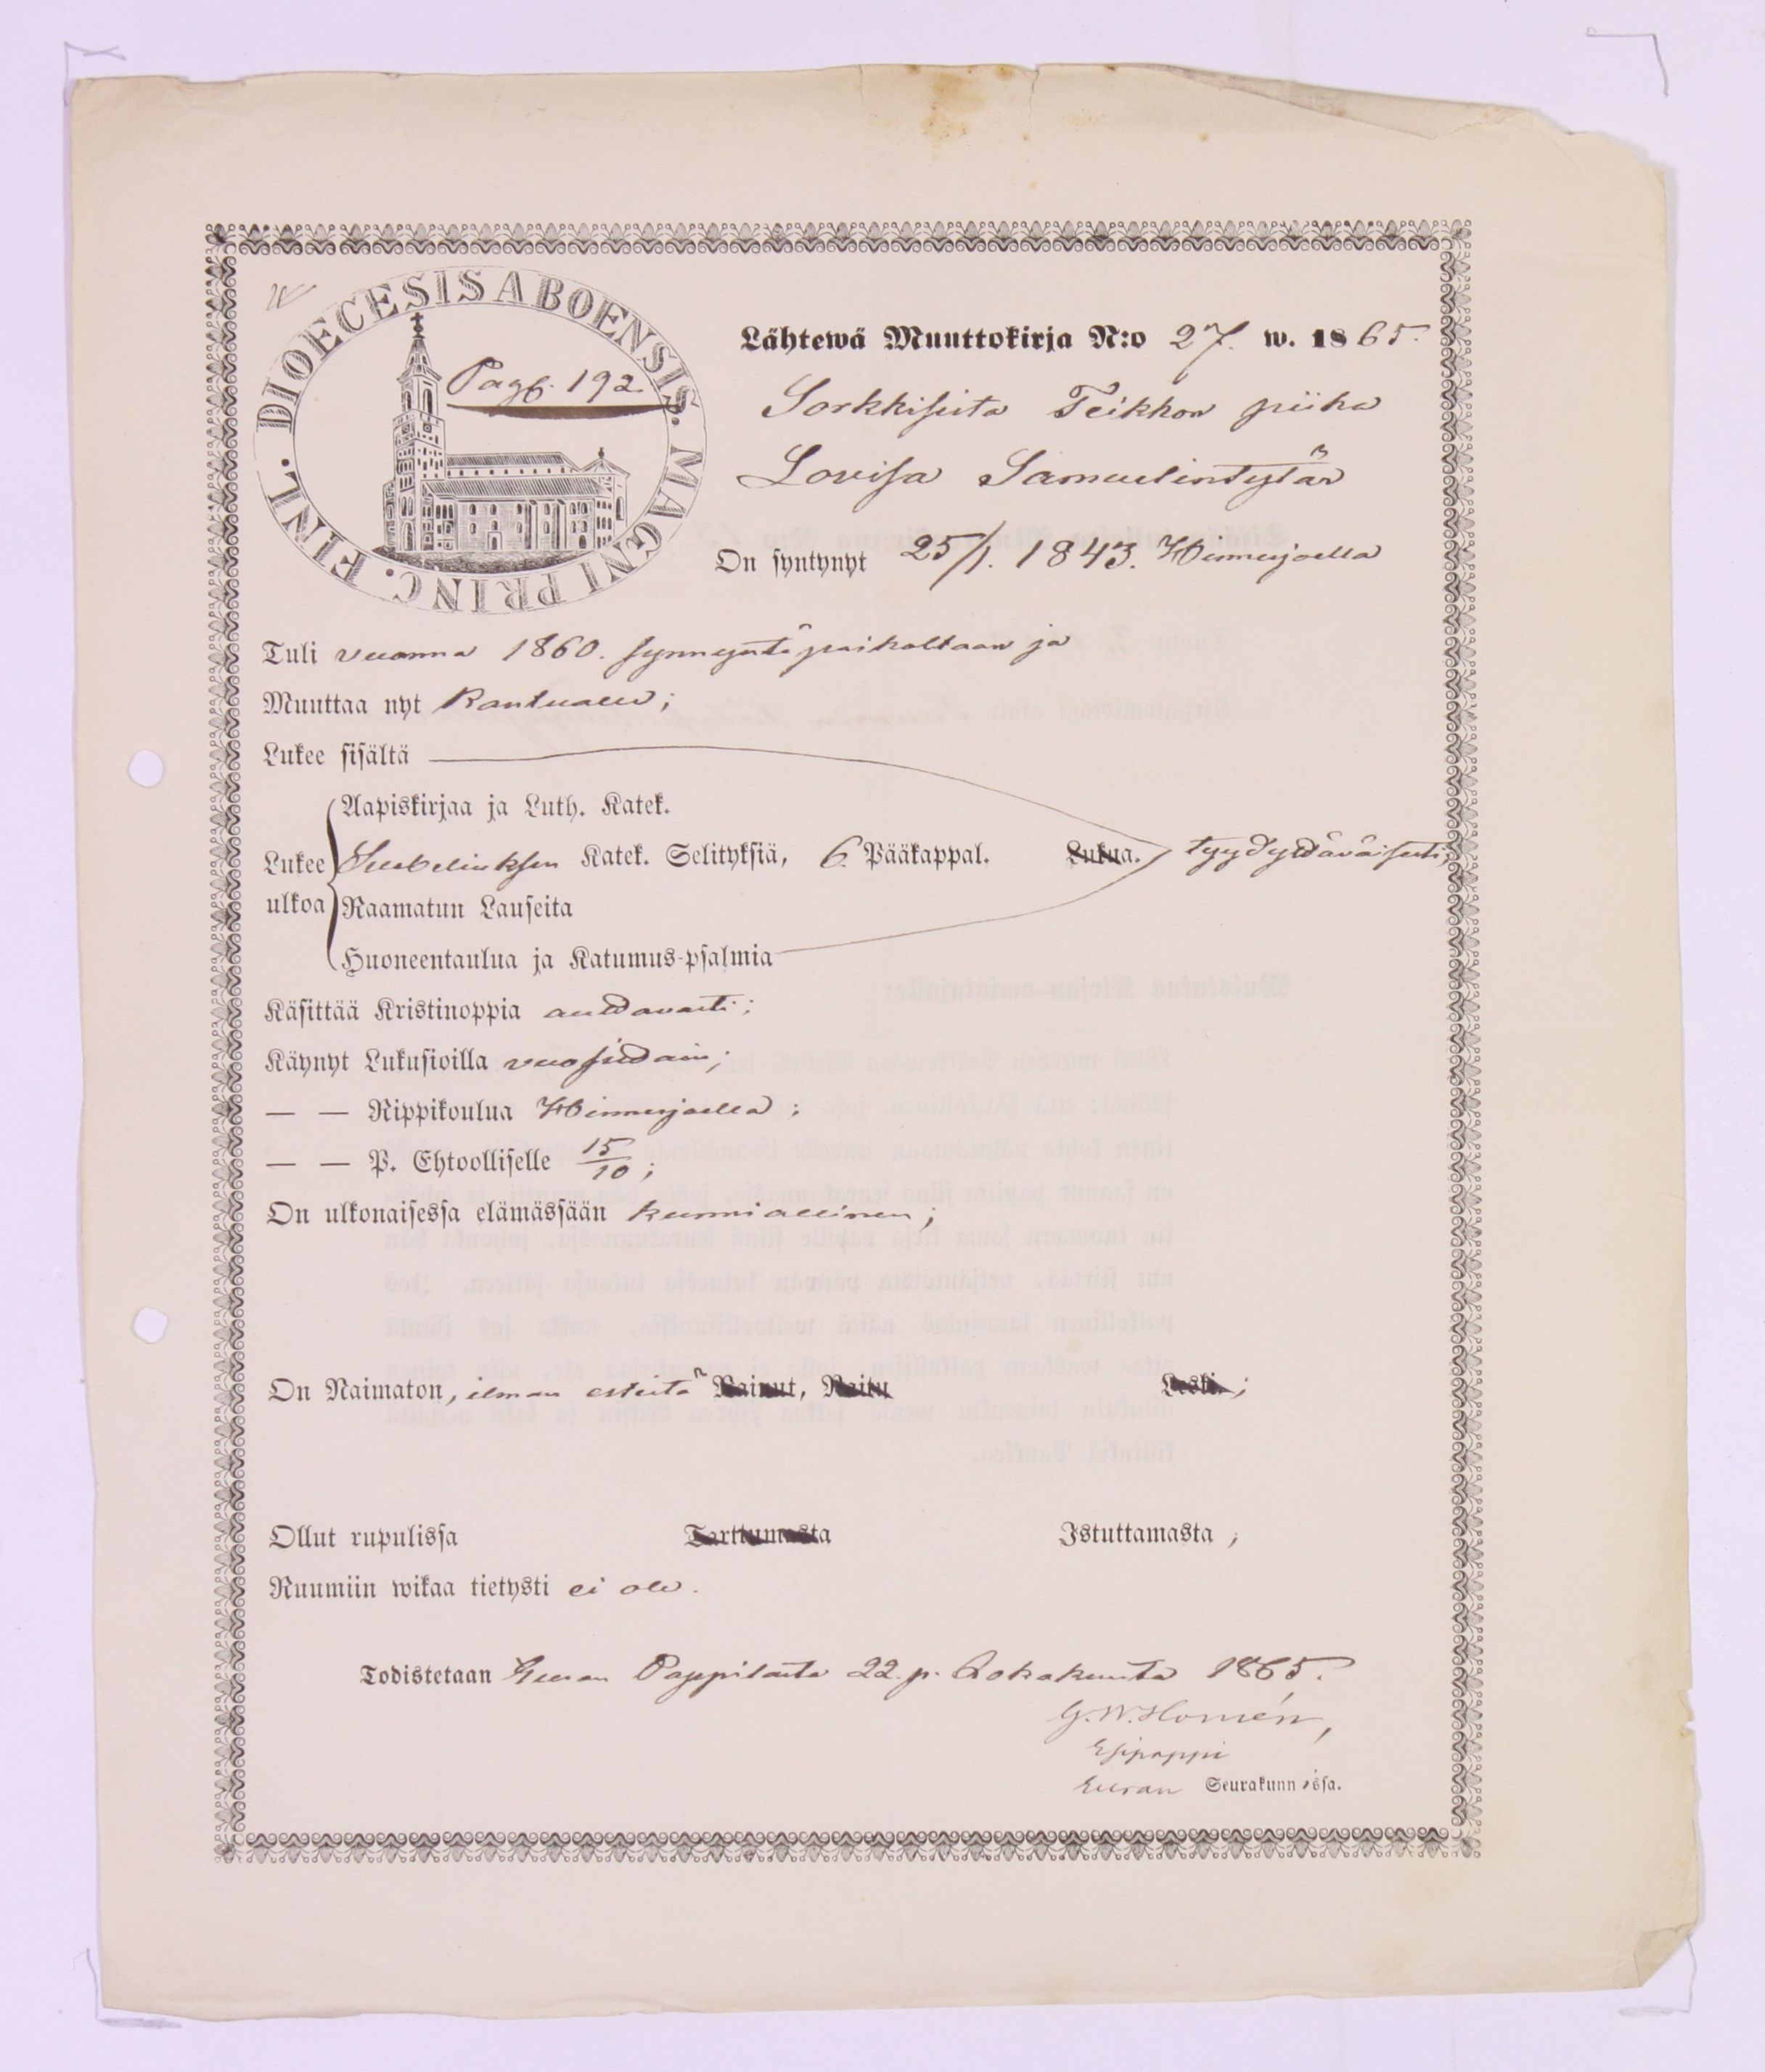 DIOECESIS ABOENSIS. MAGNI PRINC. FINL.
Pag. 192.
Lähtewä Muuttokirja N:o 27. w. 1865.
Sorkkisista Teikkon piika
Lovisa Samuelintytär
On syntynyt 25/1. 1843. Hinnerjoella
Tuli vuonna 1860. synnyntäpaikaltaan ja
Muuttaa nyt Raumalle;
Lukee sisältä
Aapiskirjaa ja Luth. Katek.
Lukee ulkoa Katek. Selityksiä, 6 Pääkappal. Lukua. tyydyttäväisesti;
Raamatun Lauseita
Huoneentaulua ja Katumus-psalmia
Käsittää Kristinoppia auttavasti;
Käynyt Lukusioilla vuosittain;
— — Rippikoulua Hinnerjoella;
— — P. Ehtoolliselle 15/10;
On ulkonaisessa elämässään kunniallinen;
On Naimaton, ilman esteitä Nainut, Naitu Leski.;
Ollut rupulissa Tarttumasta Istuttamasta;
Ruumiin wikaa tietysti ei ole.
Todistetaan Euran Pappilasta 22. p. Lokakuuta 1865.
G. W. Homén,
Esipappi
Euran Seurakunnissa.